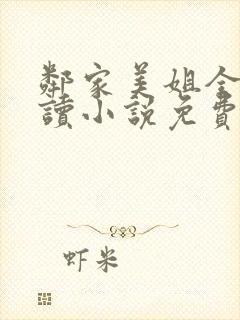 鄰家美姐全
讀小說免費
虾米